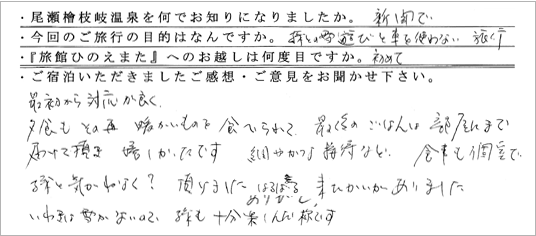 ・尾瀬檜枝岐温泉を何でお知りになりましたか。 新聞で
・今回のご旅行の目的はなんですか。 孫との雪遊びと車を使わない旅行
・『旅館ひのえまた』へのお越しは何度目ですか。 初めて
・ご宿泊いただきましたご感想・ご意見をお聞かせ下さい。
最初から対応が良く、
夕食も その再 暖かいものを食べられて、最後のごはんは部屋まで
届けて頂き 嬉しかったです 細やかな接待など、食事も個室で
孫と気がねなく？ 頂けました はるばる 来たかいがありました
ありがとう
いわきは雪がないので、孫も十分楽しんだ様です